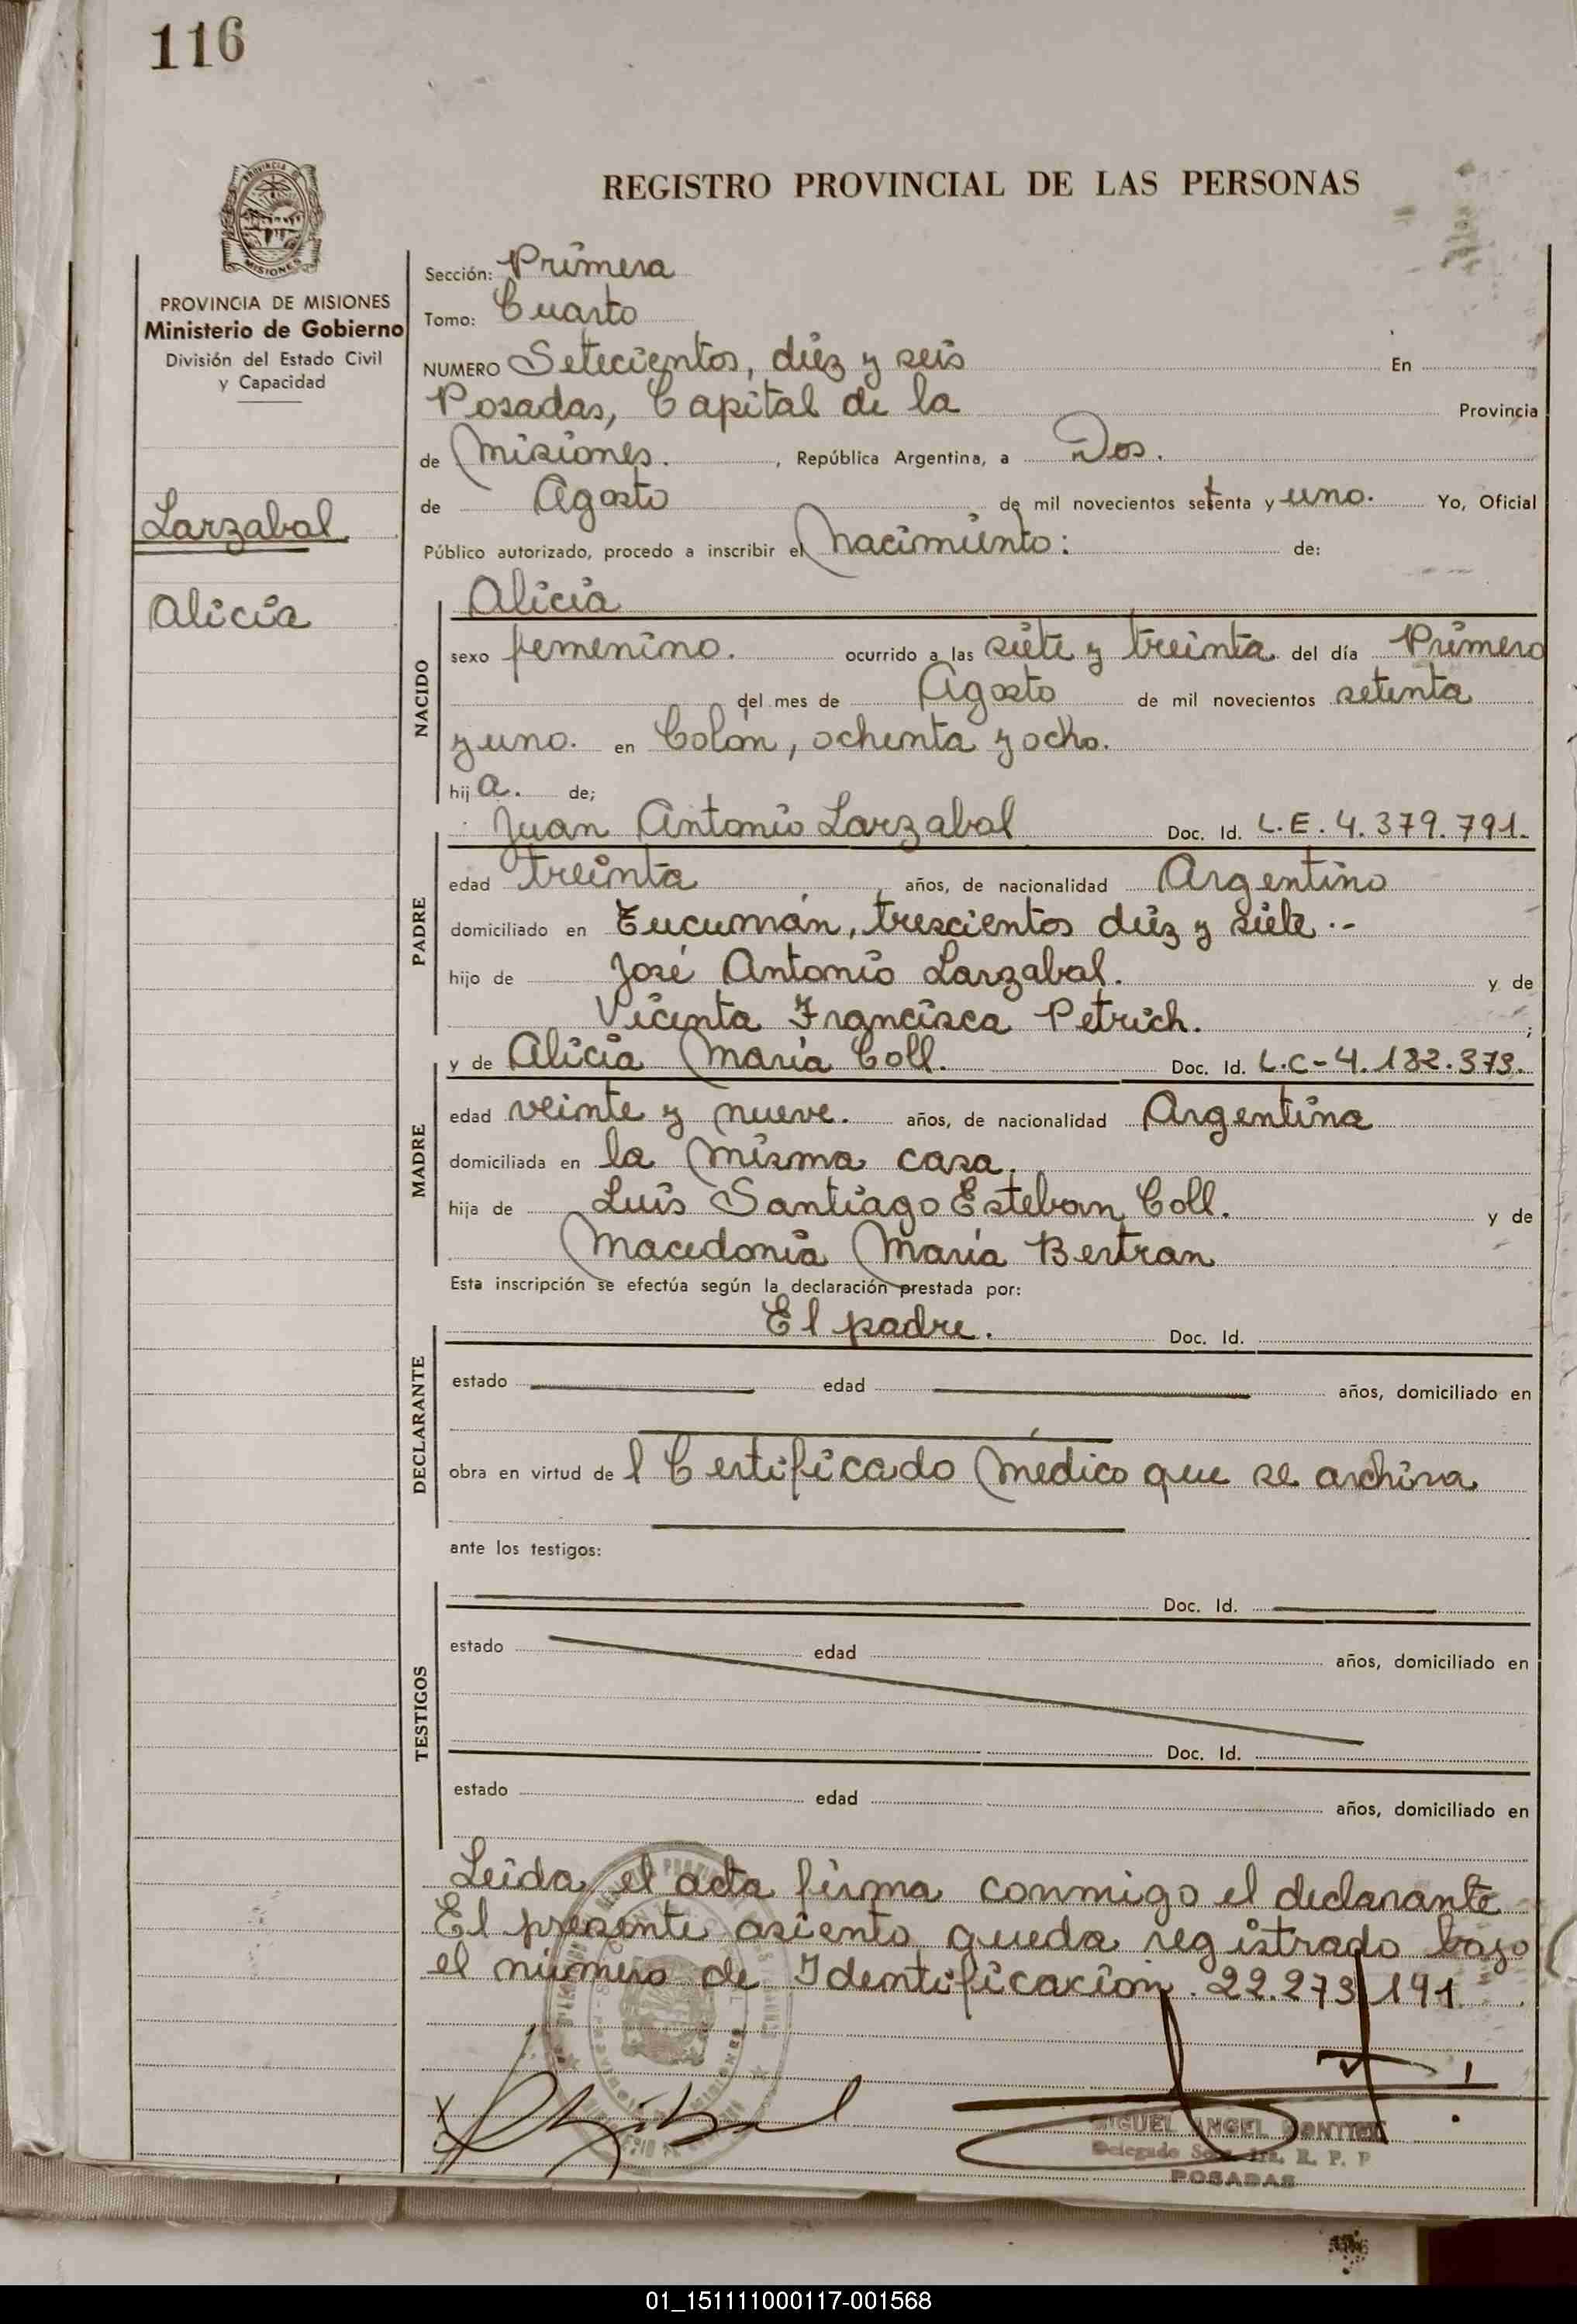 116
REGISTRO PROVINCIAL DE LAS PERSONAS
PROVINCIA DE MISIONES
Ministerio de Gobierno
División del Estado Civil
y Capacidad
Larzabal
Alicia
Sección: Primera
Tomo: Cuarto
NUMERO Setecientos, diez y seis En
Posadas, Capital de la Provincia
de Misiones. , República Argentina, a Dos.
de Agosto de mil novecientos setenta y uno. Yo, Oficial
Público autorizado, procedo a inscribir el Nacimiento: de:
NACIDO
Alicia
sexo femenino. ocurrido a las siete y treinta del día Primero
del mes de Agosto de mil novecientos setenta
y uno. en Colón, ochenta y ocho.
hij a. de;
PADRE
Juan Antonio Larzabal Doc. Id. L.E. 4.379.791.
edad treinta años, de nacionalidad Argentino
domiciliado en Tucumán, trescientos diez y siete.-
hijo de José Antonio Larzabal. y de
Vicenta Francisca Petrich. ;
MADRE
y de Alicia María Coll. Doc. Id. L.C-4.182.379.
edad veinte y nueve. años, de nacionalidad Argentina
domiciliada en la misma casa.
hija de Luis Santiago Esteban Coll. y de
Macedonia María Bertran
Esta inscripción se efectúa según la declaración prestada por:
DECLARANTE
El padre. Doc. Id.
estado edad años, domiciliado en
obra en virtud de l Certificado Médico que se archiva
ante los testigos:
TESTIGOS
Doc. Id.
estado edad años, domiciliado en
Doc. Id.
estado edad años, domiciliado en
Leida el acta firma conmigo el declarante
El presente asiento queda registrado bajo
el número de Identificación. 22.273.191
MIGUEL ANGEL
Delegado Secc. 1ra. R. P. P
POSADAS
01_151111000117-001568